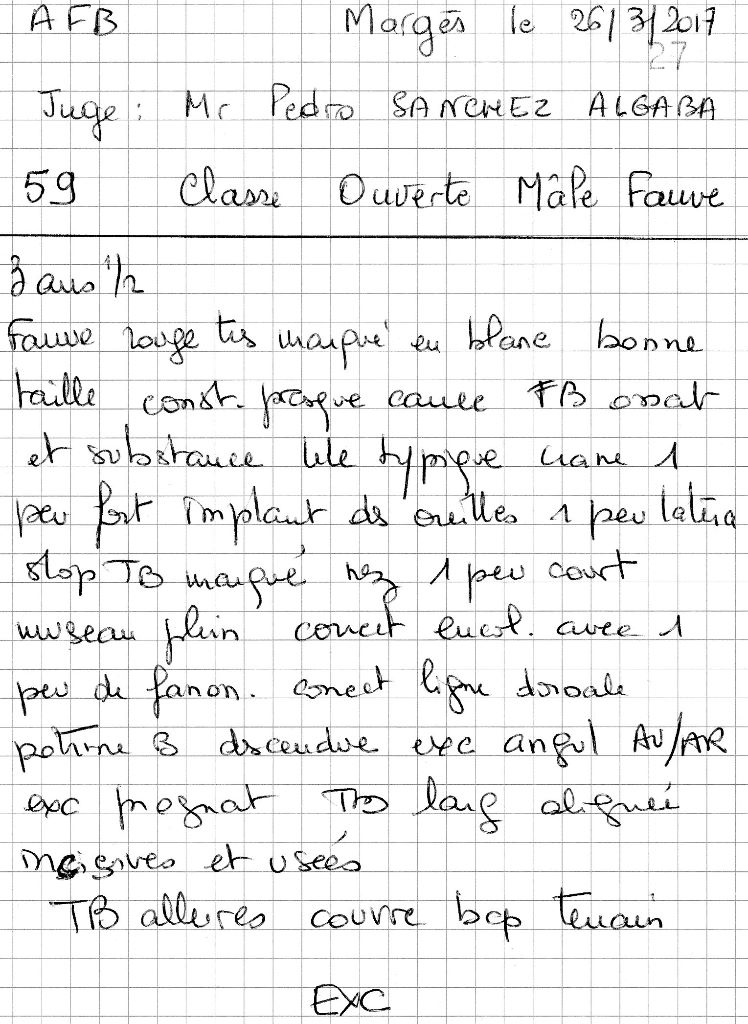 AFB Margès le 26/3/2017
27
Juge : Mr Pedro SANCHEZ ALGABA
59 Classe Ouverte Mâle Fauve
3 ans 1/2
Fauve rouge trs marqué en blanc bonne
taille const. presque carree TB ossat
et substance tete typique crane 1
peu fort implant ds oreilles 1 peu latéra
stop TB marqué nez 1 peu court
museau plein correct encol. avec 1
peu de fanon. correct ligne dorsale
potrine B dscendue exc angul AV/AR
exc prognat TB larg alignée
incisives et usées
TB allures couvre bcp terrain
EXC